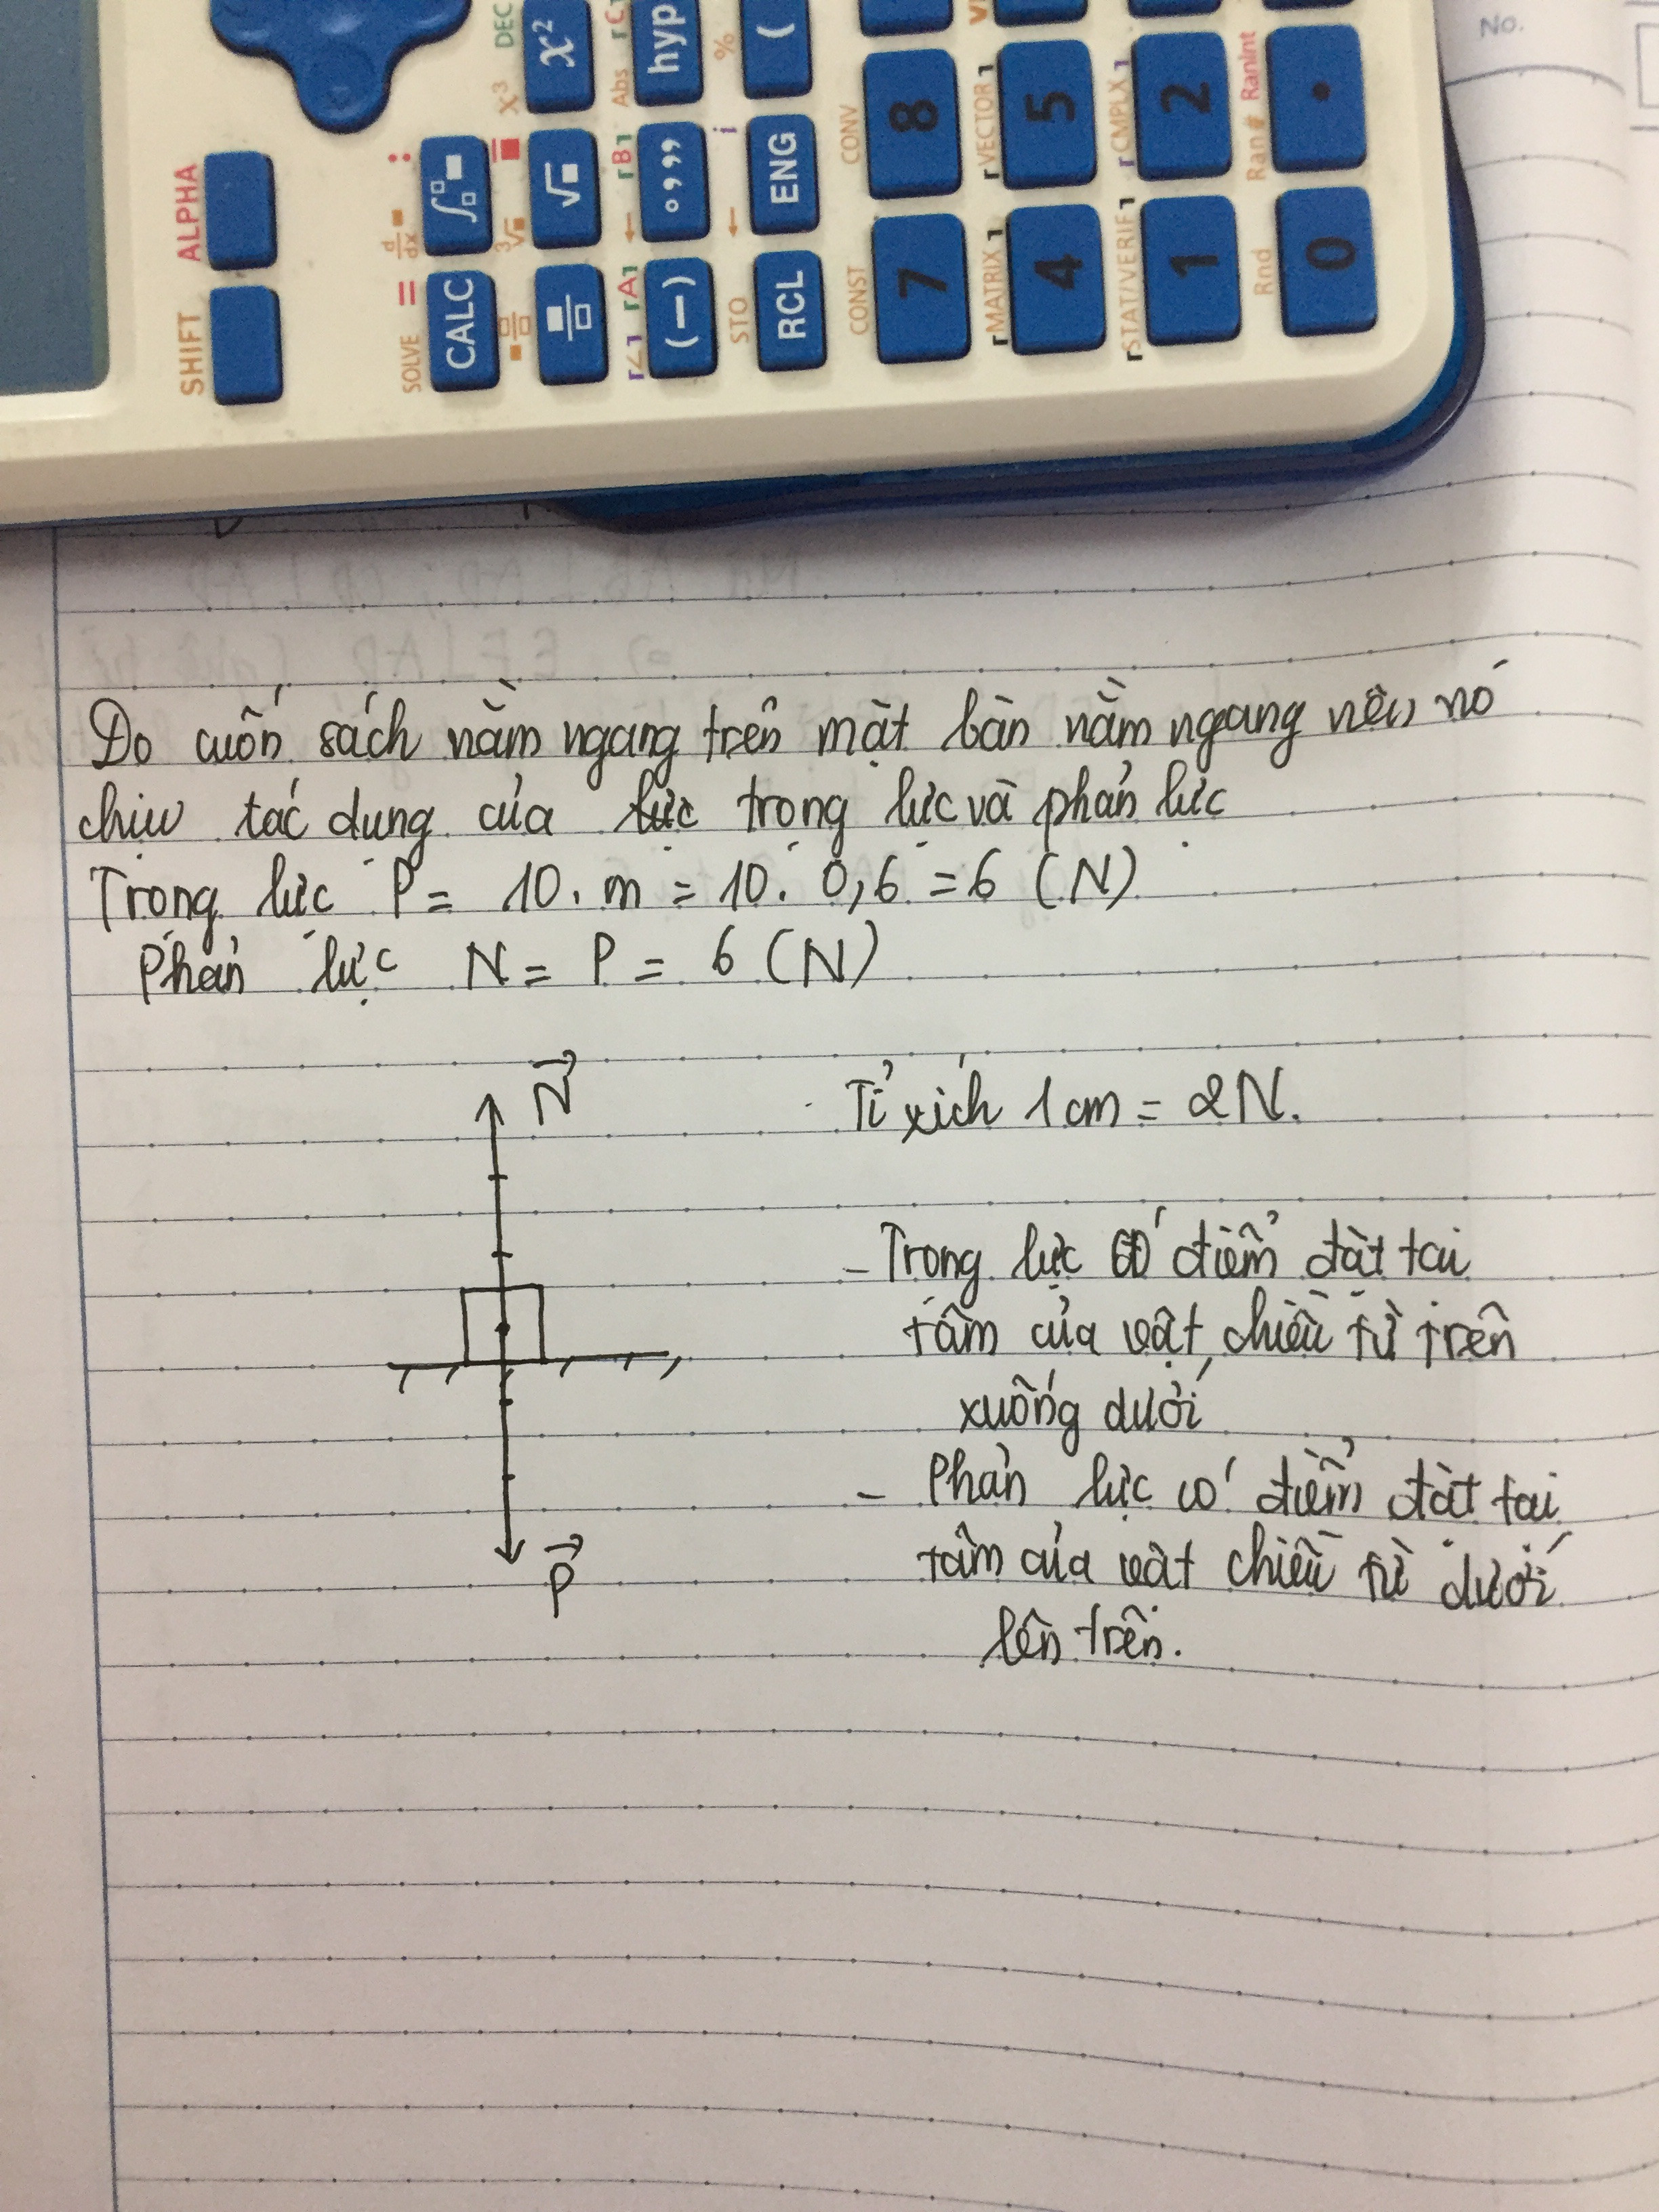 No.
SHIFT ALPHA
SOLVE = d/dx :
CALC ∫
x³ DEC
√ x²
∠ A ← B Abs C
(−) °,,, hyp
STO ← i %
RCL ENG (
CONST CONV
7 8
MATRIX VECTOR
4 5
STAT/VERIF CMPLX
1 2
Rnd Ran# RanInt
0 .
Do cuốn sách nằm ngang trên mặt bàn nằm ngang nên nó
chịu tác dụng của lực trọng lực và phản lực
Trọng lực P = 10. m = 10. 0,6 = 6 (N)
Phản lực N = P = 6 (N)
N
Tỉ xích 1 cm = 2N.
- Trọng lực có điểm đặt tại
tâm của vật, chiều từ trên
xuống dưới
- Phản lực có điểm đặt tại
tâm của vật chiều từ dưới
lên trên.
P